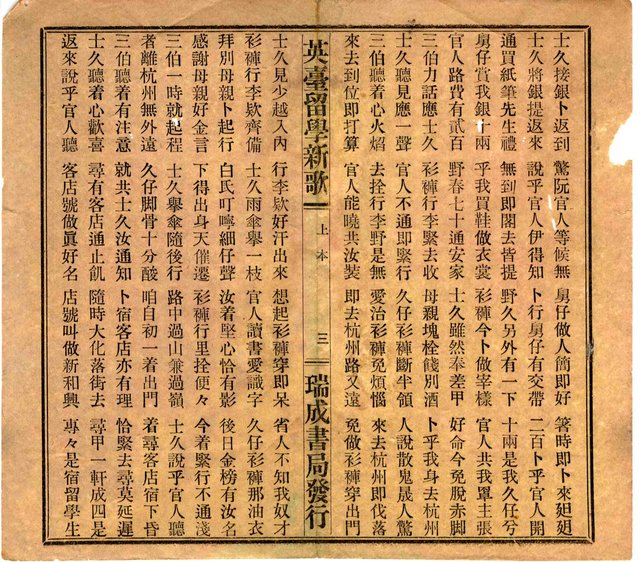 士久接銀卜返到 驚阮官人等候無 舅仔做人簡即好 箬時即卜來廻廻
士久將銀提返來 說乎官人伊得知 卜行舅仔有交帶 二百卜乎官人開
通買紙筆先生禮 無到即閣去皆提 野久另外有一下 十兩是我久仔兮
舅仔賞我銀十兩 乎我買鞋做衣裳 衫褲今卜做宰樣 官人共我罩主張
官人路費有貳百 野春七十通安家 士久雖然奉差甲 好命今免脫赤脚
三伯力話應士久 衫褲行李緊去收 母親塊栓餞別酒 卜乎我身去杭州
士久聽見應一聲 官人不通即緊行 久仔衫褲斷半領 人說散鬼晟人驚
三伯聽着心火焰 去拴行李野是無 愛治衫褲免煩惱 來去杭州即伐落
來去到位即打算 官人能曉共汝裝 即去杭州路又遠 免做衫褲穿出門
英臺留學新歌 上本 三 瑞成書局發行
士久見少越入內 行李欵好汗出來 想起衫褲穿即呆 省人不知我奴才
衫褲行李欵齊備 士久雨傘擧一枝 官人讀書愛識字 久仔衫褲那油衣
拜別母親卜起行 白氏叮嚀細仔聲 汝着堅心恰有影 後日金榜有汝名
感謝母親好金言 下得出身天催遷 衫褲行里拴便々 今着緊行不通淺
三伯一時就起程 士久擧傘隨後行 路中過山兼過嶺 士久說乎官人聽
者離杭州無外遠 久仔脚骨十分酸 咱自初一着出門 着尋客店宿下昏
三伯聽着有注意 就共士久汝通知 卜宿客店亦有理 恰緊去尋莫延遲
士久聽着心歡喜 尋有客店通止飢 隨時大化落街去 尋甲一軒成四是
返來說乎官人聽 客店號做眞好名 店號叫做新和興 專々是宿留學生